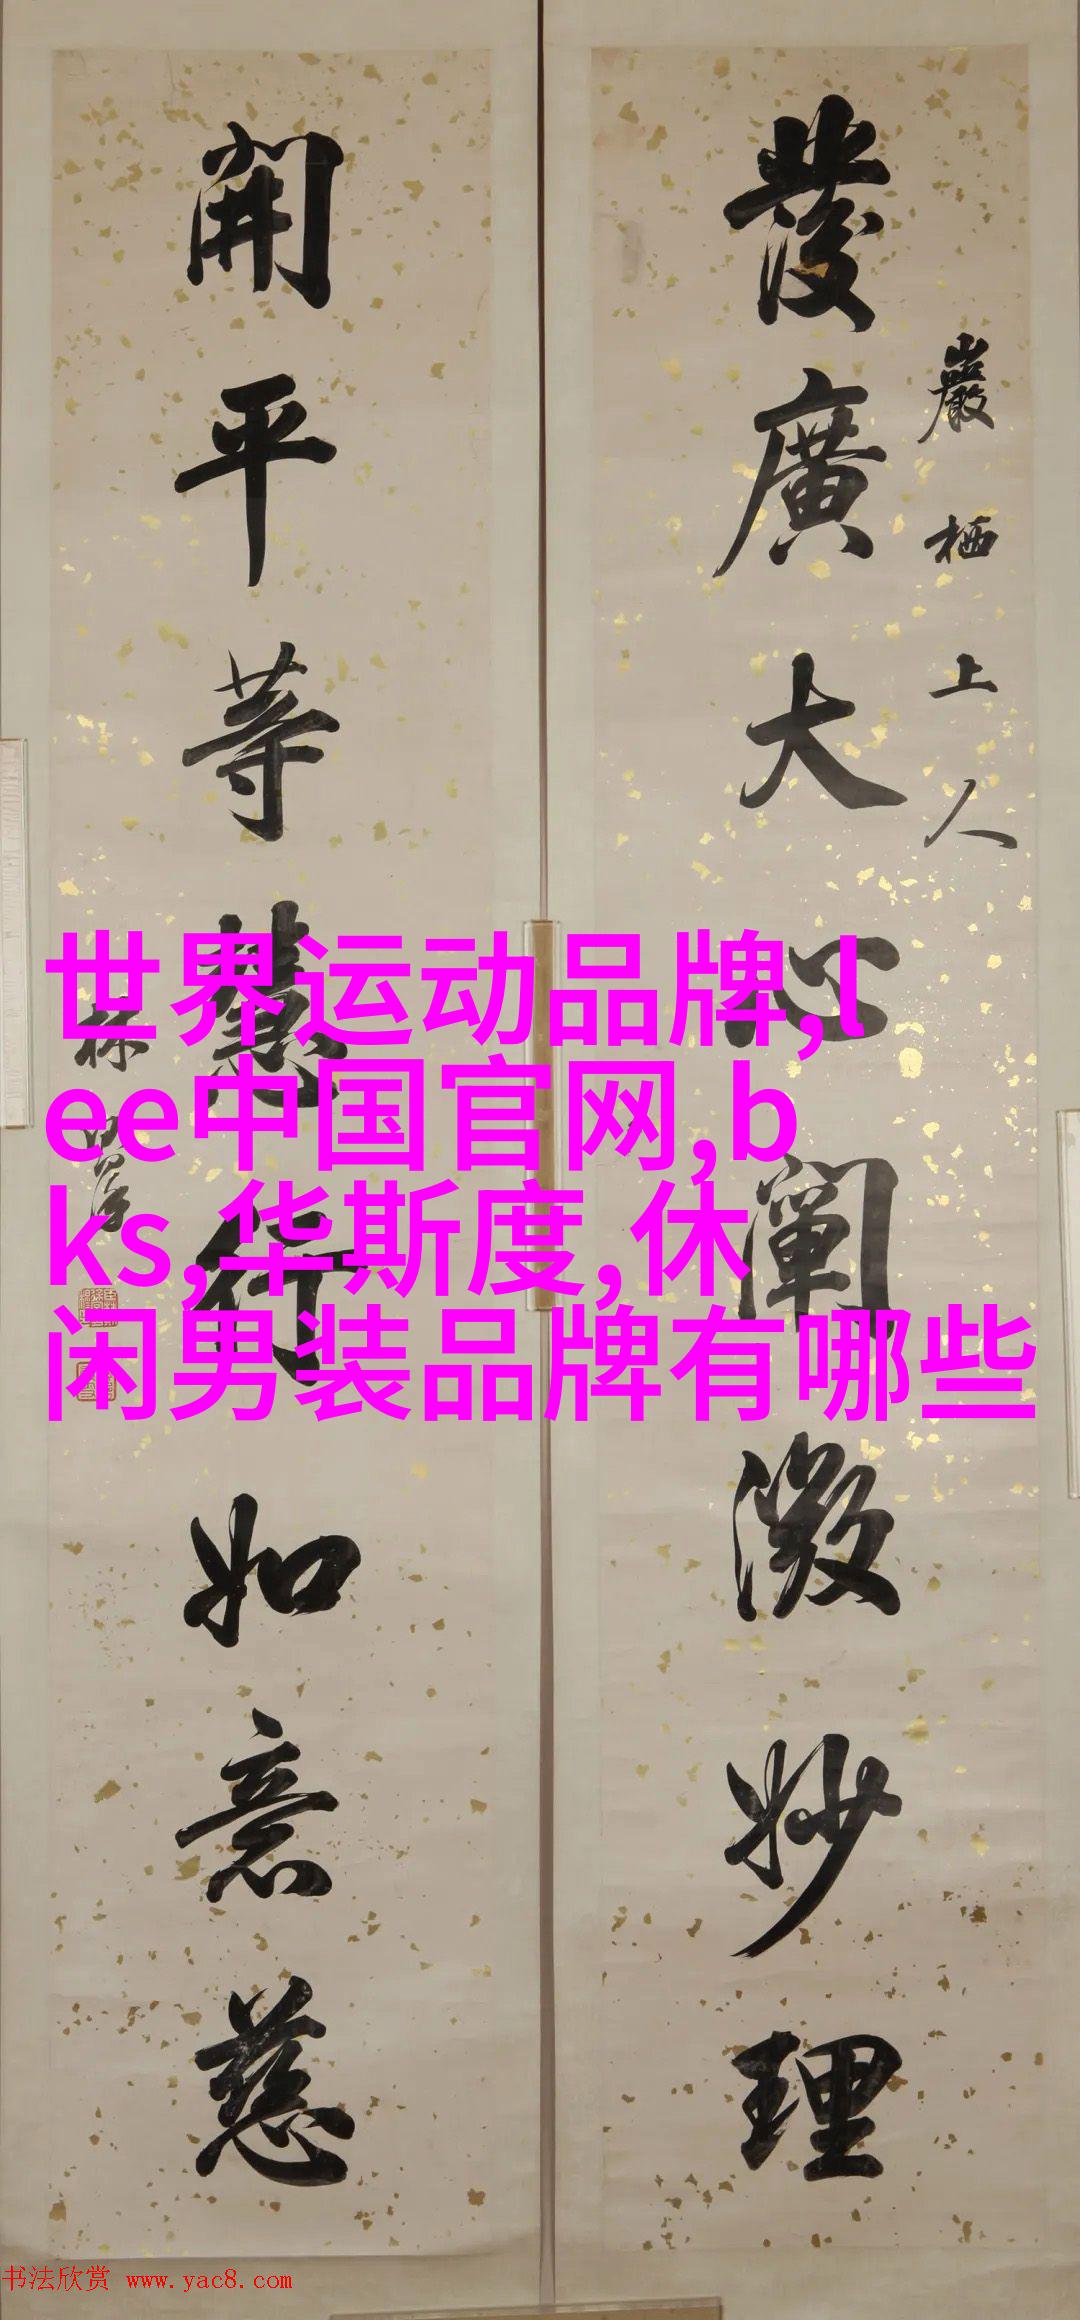 發廣大心闡微妙理
巖栖上人
開平等慧行如意慈
林
世界运动品牌,l
ee中国官网,b
ks,华斯度,休
闲男装品牌有哪些
书法欣赏 www.yac8.com